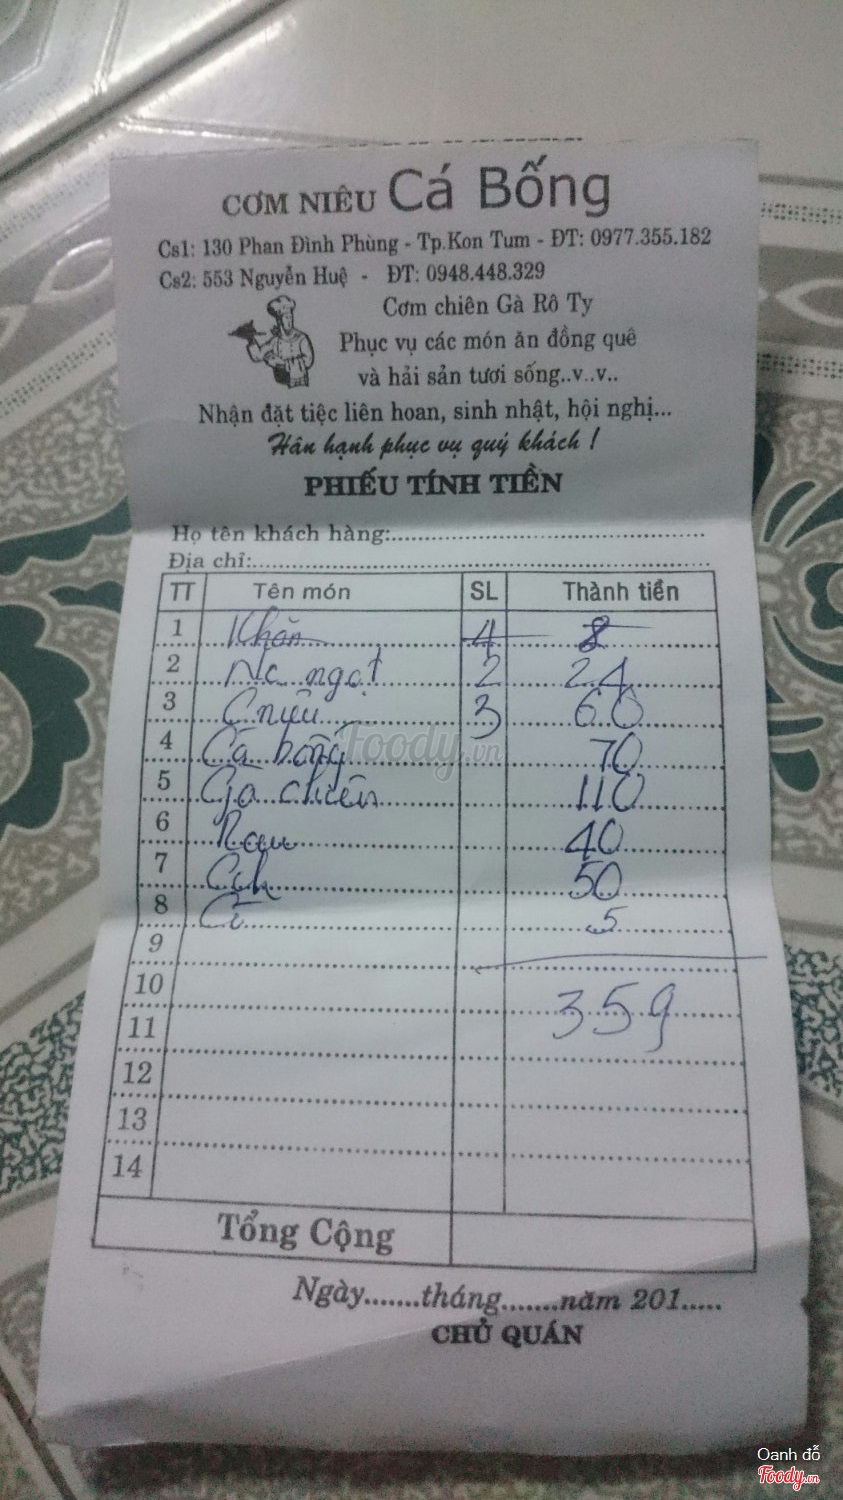 CƠM NIÊU Cá Bống
Cs1: 130 Phan Đình Phùng - Tp.Kon Tum - ĐT: 0977.355.182
Cs2: 553 Nguyễn Huệ - ĐT: 0948.448.329
Cơm chiên Gà Rô Ty
Phục vụ các món ăn đồng quê
và hải sản tươi sống..v..v..
Nhận đặt tiệc liên hoan, sinh nhật, hội nghị...
Hân hạnh phục vụ quý khách !
PHIẾU TÍNH TIỀN
Họ tên khách hàng:
Địa chỉ:
TT Tên món SL Thành tiền
1 Khăn 4 8
2 Nc ngọt 2 24
3 C niêu 3 60
4 Cá bống 70
5 Gà chiên 110
6 Rau 40
7 Cah 50
8 5
9
10 359
11
12
13
14
Tổng Cộng
Ngày.......tháng.......năm 201.....
CHỦ QUÁN
Foody.vn
Oanh đỗ
Foody.vn